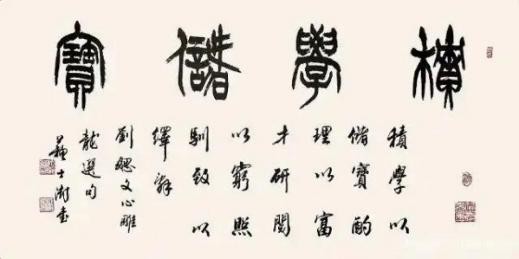 積學儲寶
積學以
儲寶酌
理以富
才研閱
以窮照
馴致以
繹辭
劉勰文心雕
龍選句
蘇士澍書